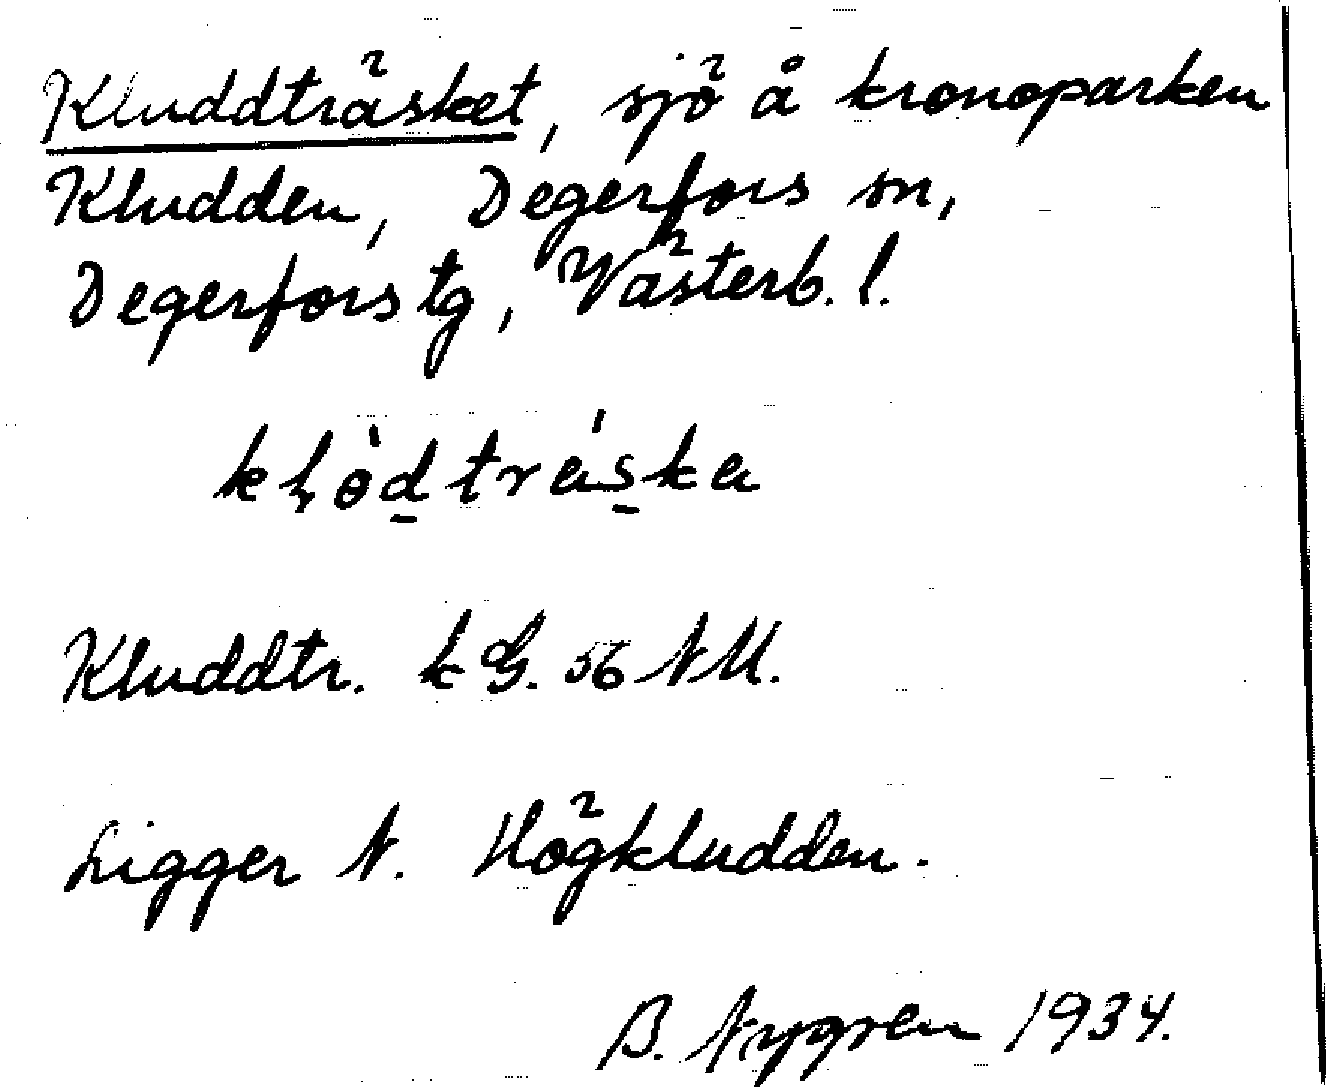 Kluddträsket, sjö å kronoparken
Kludden, Degerfors sn,
Degerfors tg, Västerb. l.
kḷòd̠trás̠ka
Kluddtr. k G. 56 NU.
Ligger N. Högkludden.
B. Nygren 1934.